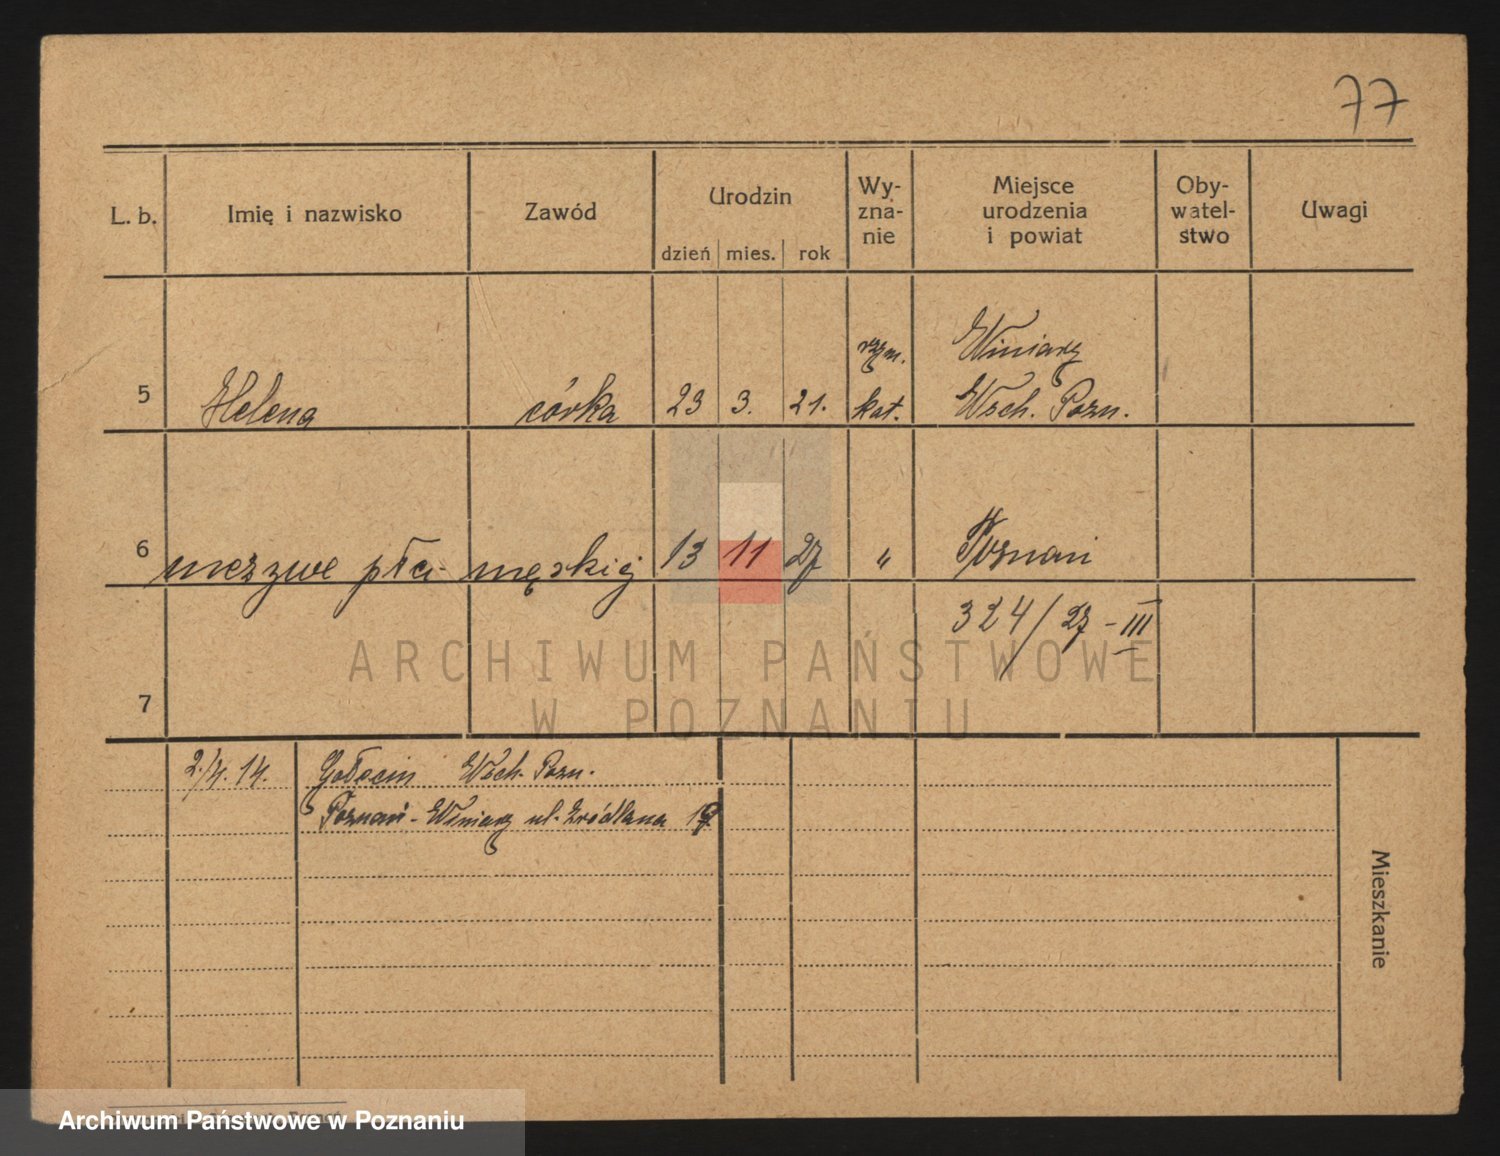 77
L. b. Imię i nazwisko Zawód Urodzin Wy- Miejsce Oby- Uwagi
zna- urodzenia watel-
nie i powiat stwo
dzień mies. rok
rzym. Winiary
5 Helena córka 23 3. 21. kat. Wsch. Pozn.
6 nieżywe płci męskiej 13 11 27 " Poznań
324/27 - III
7
2./4. 14. Golęcin Wsch. Pozn.
Poznań - Winiary ul. Źródlana
Mieszkanie
ARCHIWUM PAŃSTWOWE
W POZNANIU
Archiwum Państwowe w Poznaniu